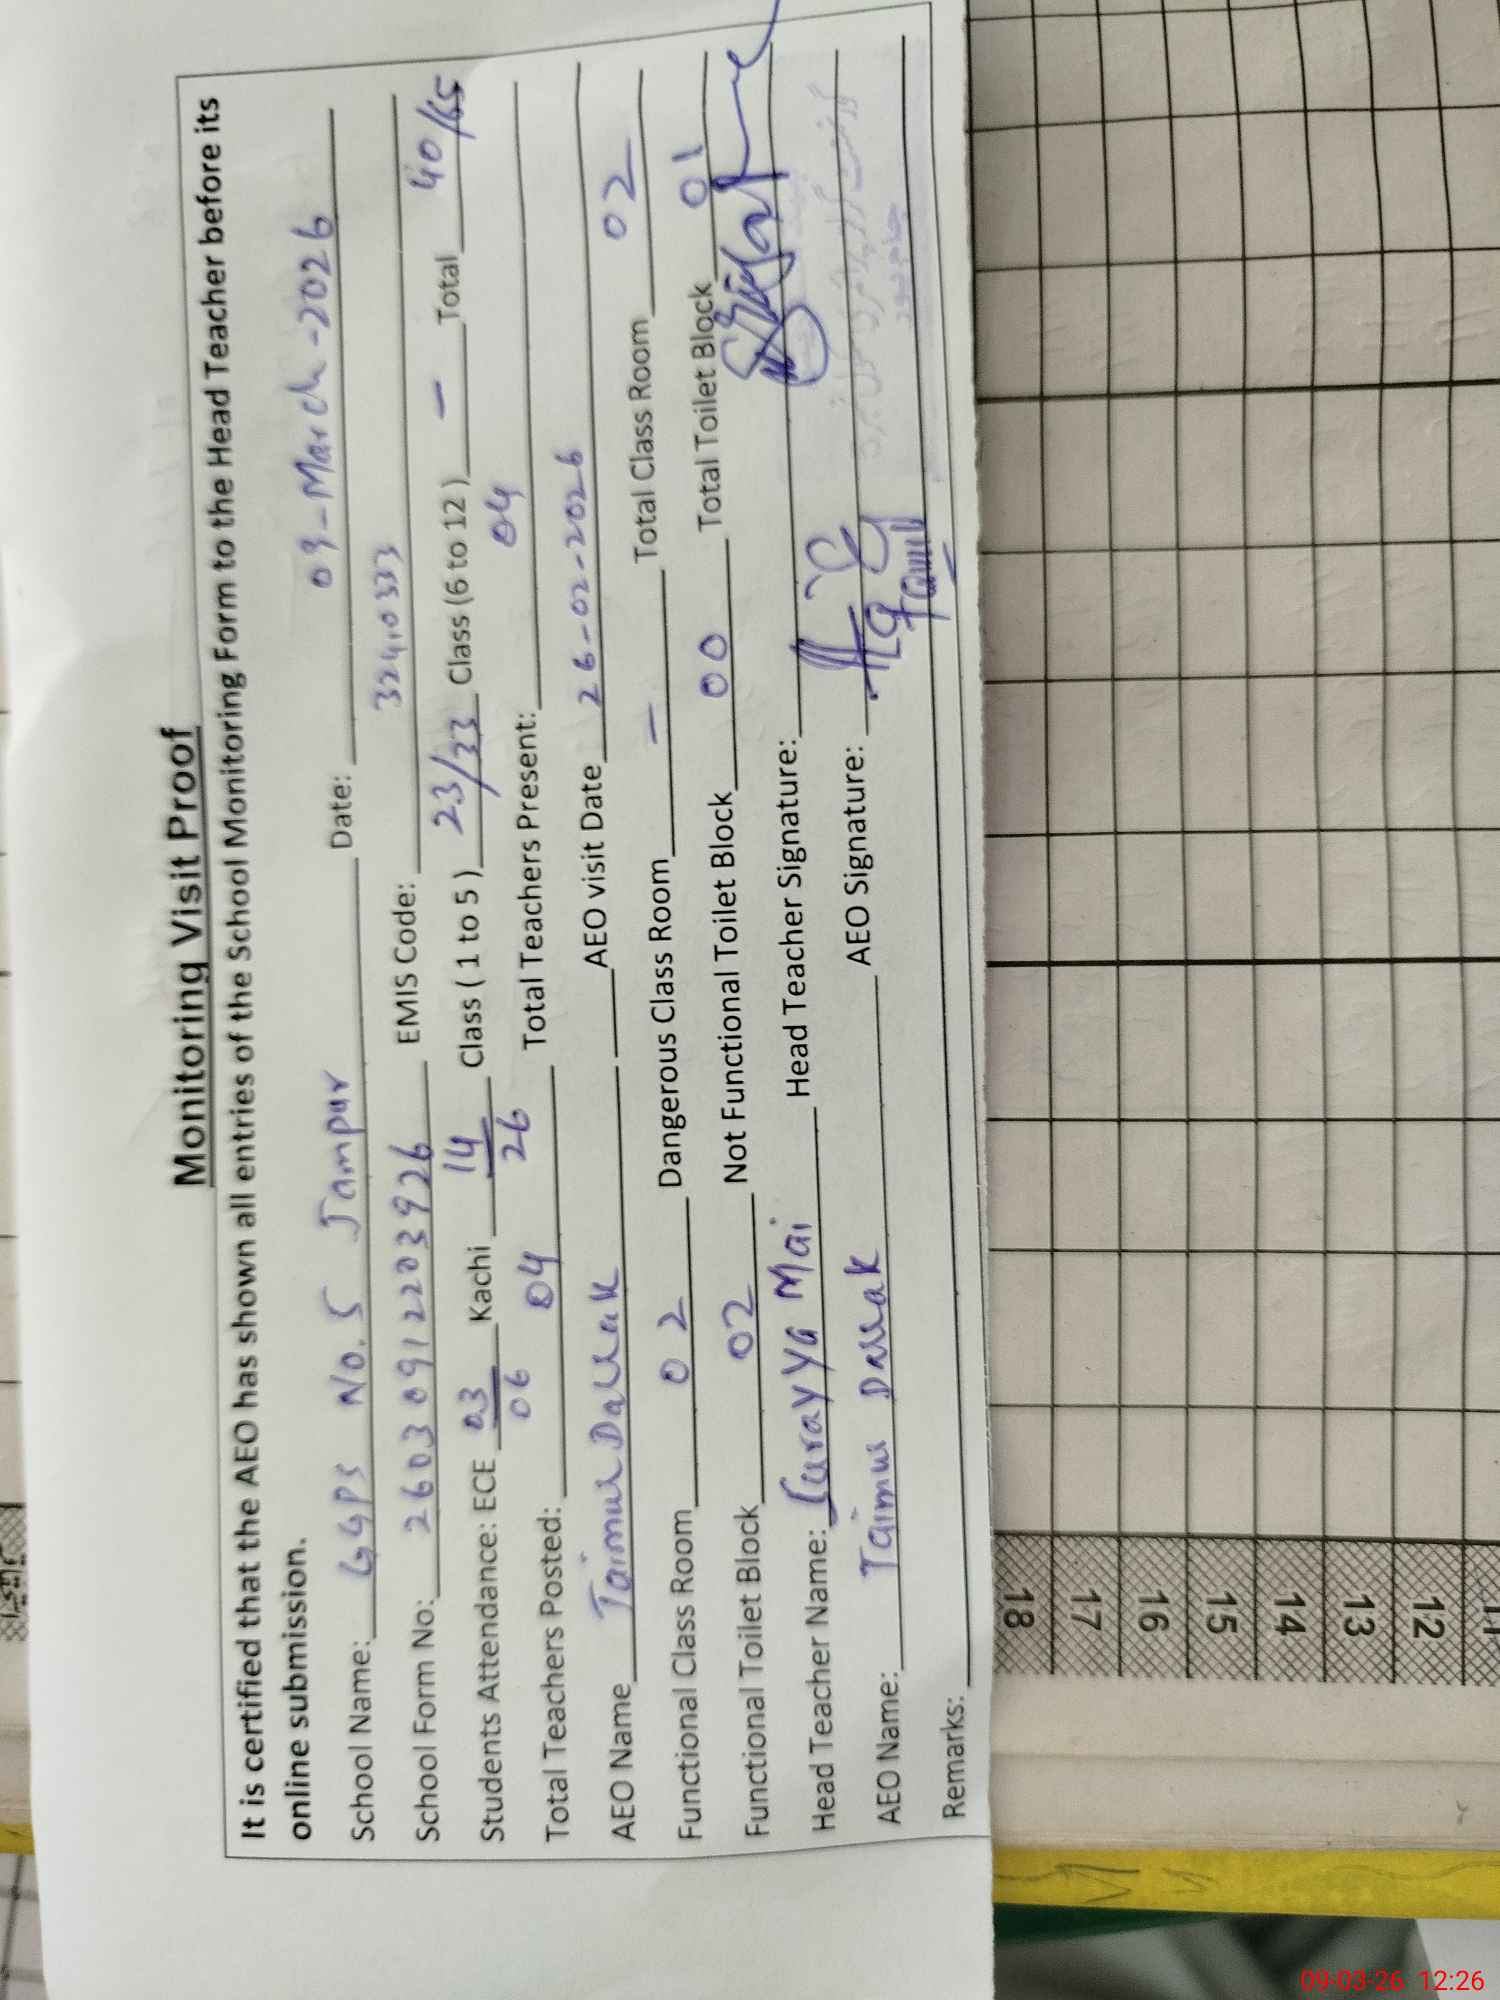 Monitoring Visit Proof
It is certified that the AEO has shown all entries of the School Monitoring Form to the Head Teacher before its
online submission.
School Name: GGPS No. 5 Jampur Date: 09-March-2026
School Form No: 26030912203926 EMIS Code: 32410333
Students Attendance: ECE 03/06 Kachi 14/26 Class ( 1 to 5 ) 23/33 Class (6 to 12 ) - Total 40/65
Total Teachers Posted: 04 Total Teachers Present: 04
AEO Name Taimur Dallak AEO visit Date 26-02-2026
Functional Class Room 02 Dangerous Class Room - Total Class Room 02
Functional Toilet Block 02 Not Functional Toilet Block 00 Total Toilet Block 01
Head Teacher Name: Surayya Mai Head Teacher Signature:
AEO Name: Taimur Dallak AEO Signature:
Remarks:
18
17
16
15
14
13
12
11
09-03-26 12:26